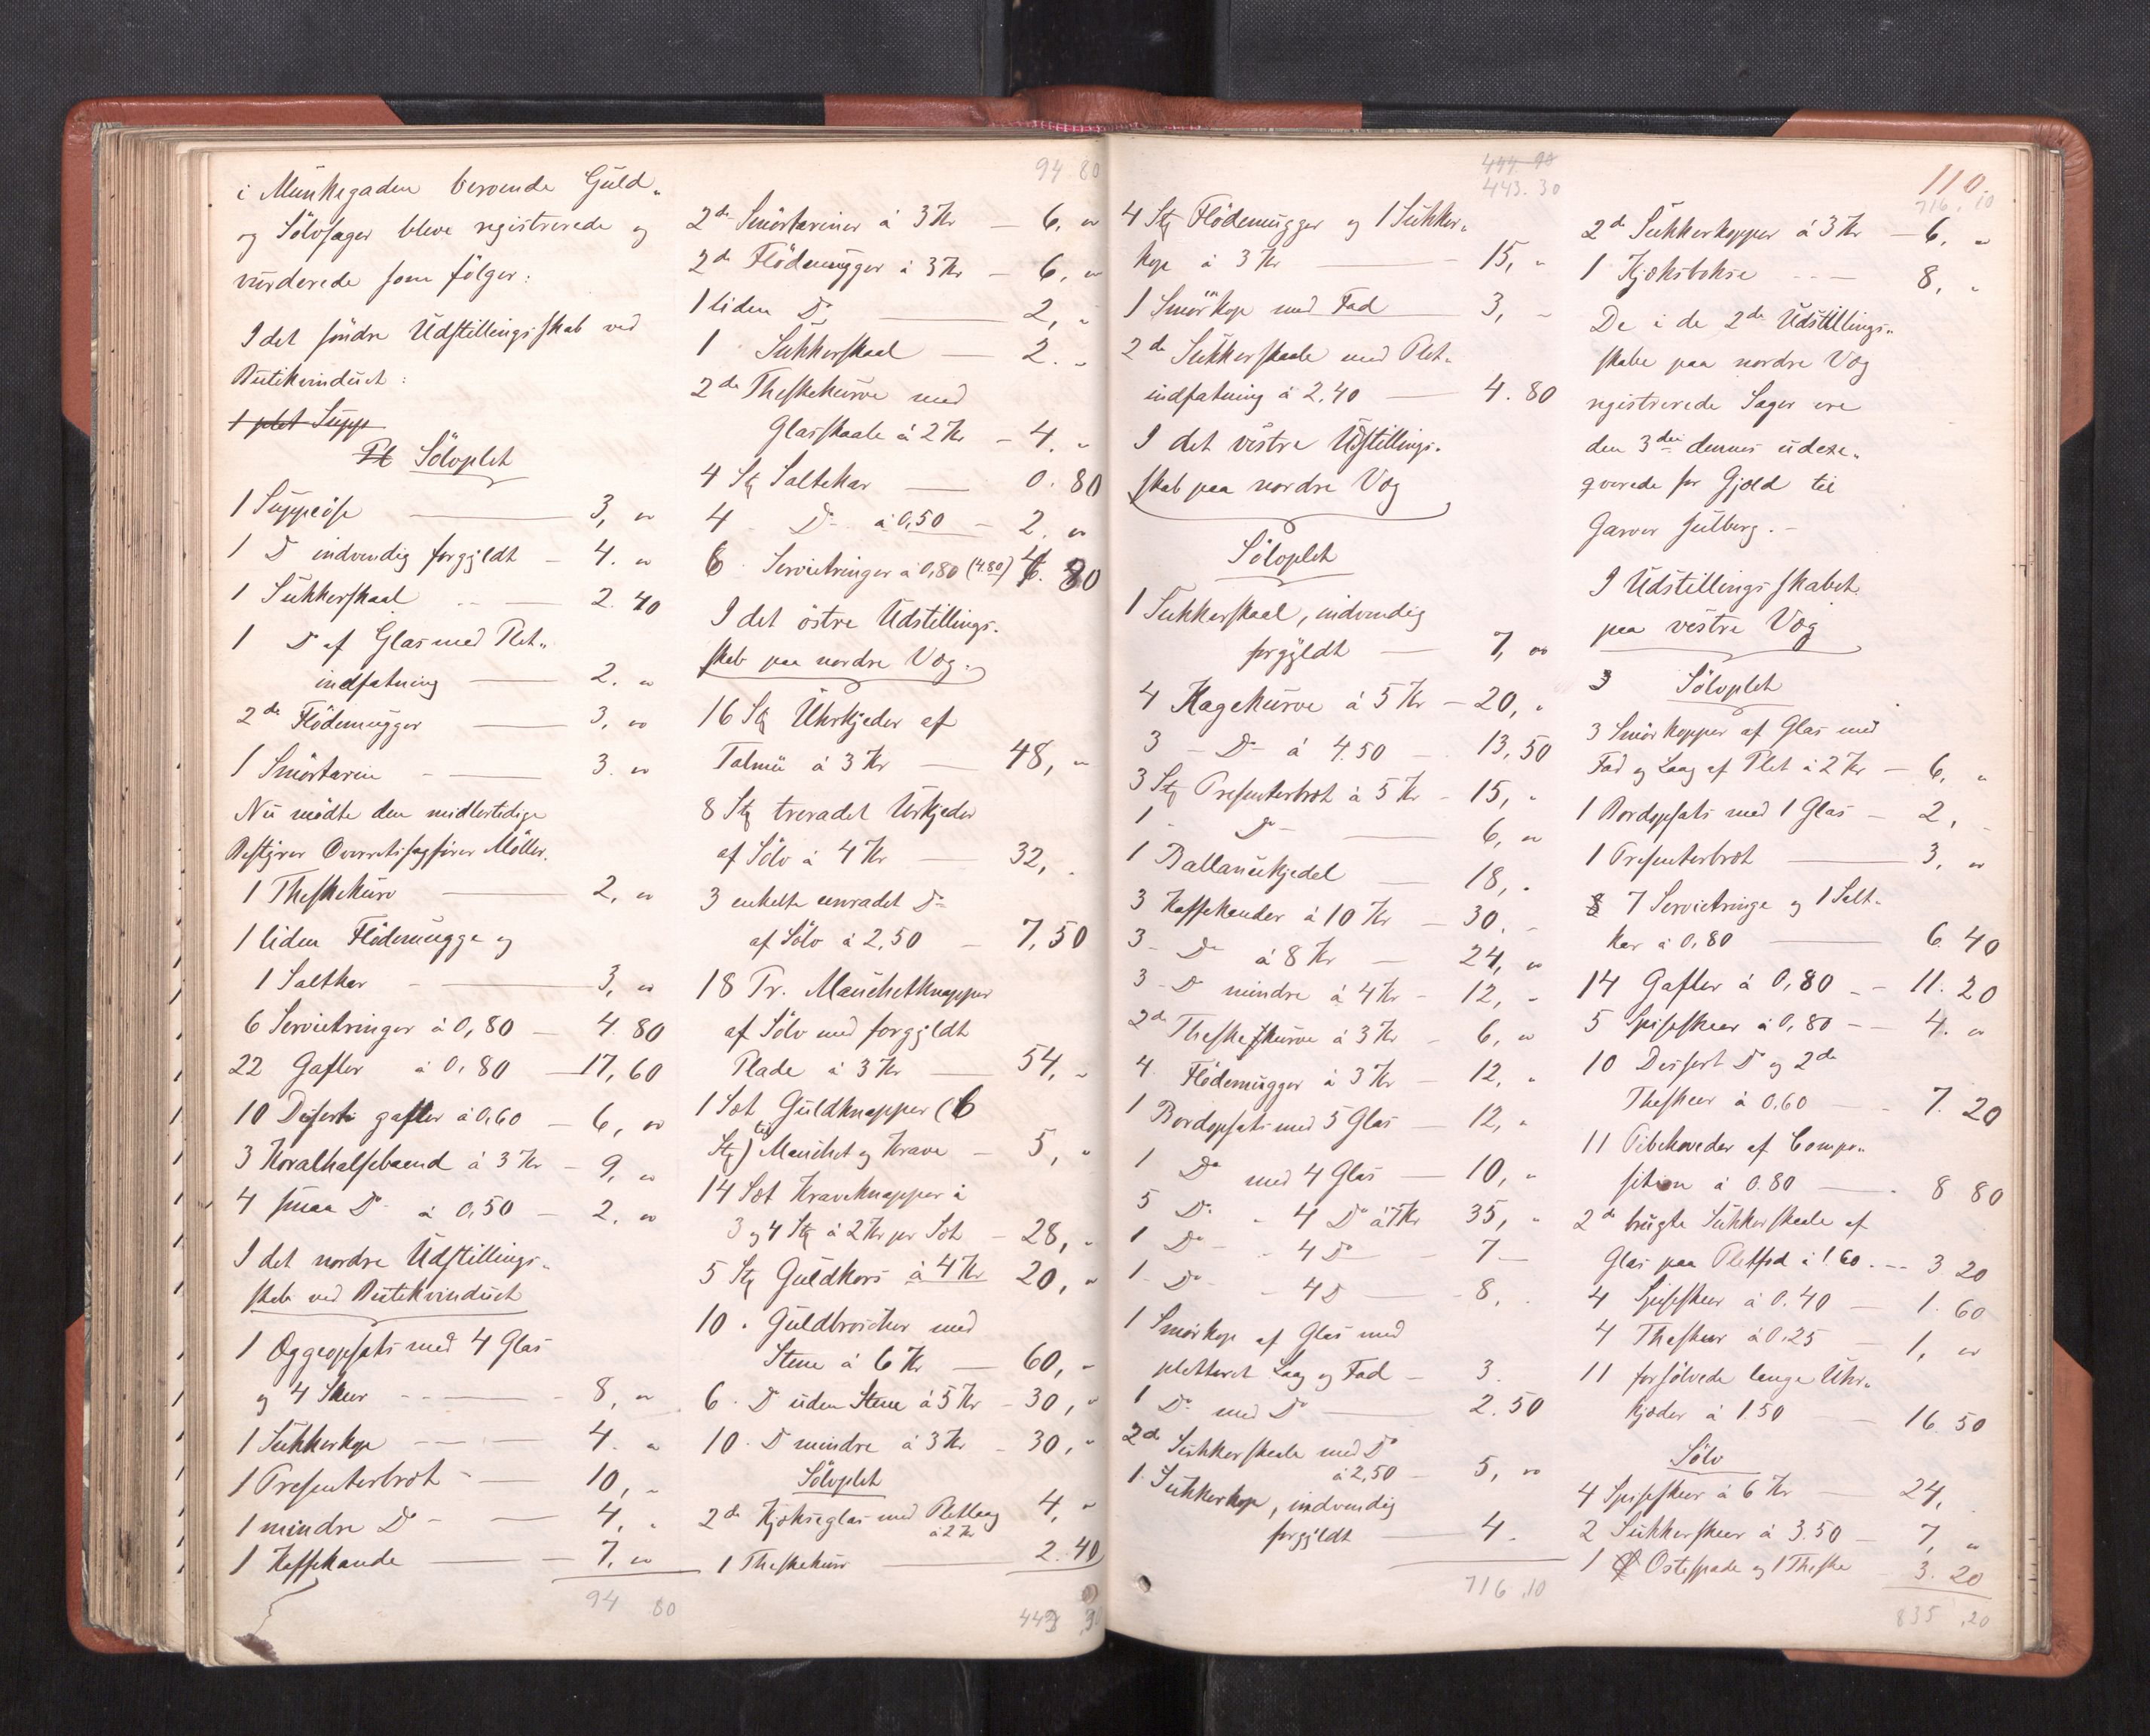 i Munkegaden beroende Guld-
og Sölvsager bleve registrerede og
vurderede som fölger:
I det söndre Udstillingsskab ved
Butikvinduet:
1 plet Supp
Pl Sölvplet
1 Suppeöse — 3, "
1 Do indvendig forgyldt — 4. "
1 Sukkerskaal — 2.40
1 Do af Glas med Plet-
indfatning — 2. "
2de Flödemugger — 3, "
1 Smörtarin — 3. "
Nu mödte den midlertidige
Bestyrer Overretssagförer Möller.
1 Theskekurv — 2, "
1 liden Flödemugge og
1 Saltkar — 3, "
6 Servietringer à 0,80 — 4.80
22 Gafler à 0,80 — 17,60
10 Dessert gafler à 0,60 — 6, "
3 Koralhalsebaand à 3 Kr — 9, "
4 smaa Do à 0,50 — 2. "
I det nordre Udstillings-
skab ved Butikvinduet
1 Æggeopsats med 4 Glas
og 4 Skeer — 8, "
1 Sukkerkop — 4. "
1 Presenterbræt — 10, "
1 mindre Do — 4, "
1 Kaffekande — 7, "
94 80
94 80
2de Smörtariner à 3 Kr — 6, "
2de Flödemugger à 3 Kr — 6, "
1 liden Do — 2, "
1 Sukkerskaal — 2. "
2de Theskekurve med
Glasskaale à 2 Kr — 4. "
4 Stk Saltekar — 0.80
4 Do à 0,50 — 2. "
6 Servietringer à 0,80 (4.80) 4.80
I det östre Udstillings-
skab paa nordre Væg.
16 Stk Uhrkjeder af
Talmi à 3 Kr — 48, "
8 Stk treradet Urkjeder
af Sölv à 4 Kr — 32, "
3 enkelte enradet Do
af Sölv à 2,50 — 7,50
18 Pr. Manchetknapper
af Sölv med forgyldt
Plade à 3 Kr — 54, "
1 Sæt Guldknapper (6
Stk) til Manchet og Krave — 5, "
14 Sæt Kraveknapper à
3 og 4 Stk à 2 Kr pr Sæt — 28, "
5 Stk Guldkors à 4 Kr 20, "
10 " Guldbroscher med
Stene à 6 Kr — 60, "
6 " Do uden Stene à 5 Kr — 30, "
10 " Do mindre à 3 Kr — 30, "
Sölvplet
2de Kjækseglas med Pletlaag 4, "
à 2 Kr
1 Theskekurv — 2.40
443
443.30
4 Stk Flödemugger og 1 Sukker-
kop à 3 Kr — 15, "
1 Smörkop med Fad 3, "
2de Sukkerskaale med Plet-
indfatning à 2,40 — 4.80
I det vestre Udstillings-
skab paa nordre Væg
Sölvplet
1 Sukkerskaal, indvendig
forgyldt — 7, "
4 Kagekurve à 5 Kr — 20, "
3 — Do à 4.50 — 13,50
3 Stk Presenterbræt à 5 Kr — 15, "
1 Do — 6, "
1 Ballancekjedel — 18, "
3 Kaffekander à 10 Kr — 30. "
3 — Do à 8 Kr — 24, "
3 — Do mindre à 4 Kr — 12, "
2de Theskekurve à 3 Kr — 6, "
4 Flödemugger à 3 Kr — 12, "
1 Bordopsats med 5 Glas — 12, "
1 Do med 4 Glas — 10, "
5 Do " 4 Do à 7 Kr 35, "
1 Do — " 4 Do — 7 —
1 Do — " 4 Do — 8, "
1 Smörkop af Glas med
pletteret Laag og Fad — 3.
1 Do med Do — 2.50
2de Sukkerskaale med Do
à 2,50 — 5, "
1 Sukkerkop, indvendig
forgyldt — 4.
716.10
110.
716.10
2de Sukkerkopper à 3 Kr — 6, "
1 Kjæksbokse — 8, "
De i de 2de Udstillings-
skabe paa nordre Væg
registrerede Sager ere
den 3die dennes udexe-
qverede for Gjæld til
Garver Julberg. —
I Udstillingsskabet
paa vestre Væg
3 Sölvplet
3 Smörkopper af Glas med
Fad og Laag af Plet à 2 Kr — 6, "
1 Bordopsats med 1 Glas — 2, "
1 Presenterbræt — 3, "
8 7 Servietringe og 1 Salt-
kar à 0,80 — 6.40
14 Gafler à 0,80 — 11.20
5 Spiseskeer à 0,80 — 4. "
10 Dessert Do og 2de
Theskeer à 0.60 — 7.20
11 Pibehoveder af Compo-
sition à 0.80 — 8 80
2de brugte Sukkerskaale af
Glas paa Pletfod à 1.60 — 3 20
4 Spiseskeer à 0.40 — 1.60
4 Theskeer à 0.25 — 1, "
11 forsölvede lange Uhr-
kjæder à 1.50 — 16.50
Sölv
4 Spiseskeer à 6 Kr — 24, "
2 Sukkerskeer à 3.50 — 7, "
1 Ostespade og 1 Theske 3.20
835.20